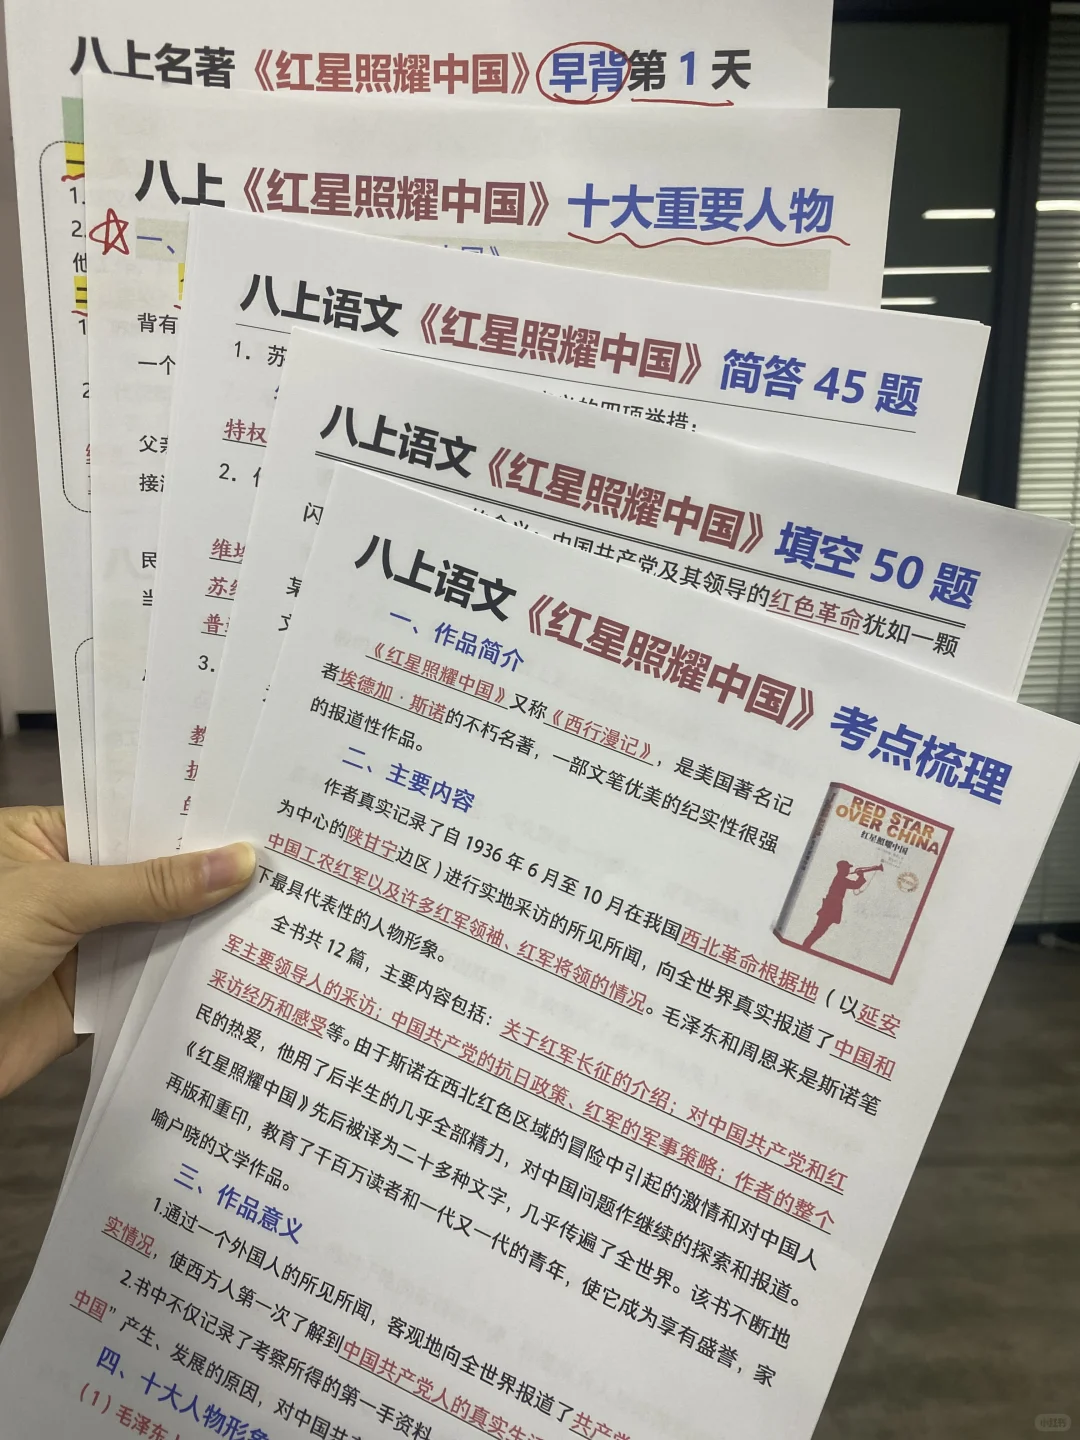 八上名著《红星照耀中国》早背第1天
1.
2.
他
1
2
八上《红星照耀中国》十大重要人物
一、
背有
一个
父亲
民
当
八上语文《红星照耀中国》简答 45 题
1. 苏
的四项举措:
特权
2.
苏维
普
3.
八上语文《红星照耀中国》填空 50 题
闪
中国共产党及其领导的红色革命犹如一颗
某
文
八上语文《红星照耀中国》考点梳理
一、作品简介
《红星照耀中国》又称《西行漫记》，是美国著名记
者埃德加·斯诺的不朽名著，一部文笔优美的纪实性很强
的报道性作品。
二、主要内容
作者真实记录了自 1936 年 6 月至 10 月在我国西北革命根据地（以延安
为中心的陕甘宁边区）进行实地采访的所见所闻，向全世界真实报道了中国和
中国工农红军以及许多红军领袖、红军将领的情况。毛泽东和周恩来是斯诺笔
下最具代表性的人物形象。
全书共 12 篇，主要内容包括：关于红军长征的介绍；对中国共产党和红
军主要领导人的采访；中国共产党的抗日政策、红军的军事策略；作者的整个
采访经历和感受等。由于斯诺在西北红色区域的冒险中引起的激情和对中国人
民的热爱，他用了后半生的几乎全部精力，对中国问题作继续的探索和报道。
《红星照耀中国》先后被译为二十多种文字，几乎传遍了全世界。该书不断地
再版和重印，教育了千百万读者和一代又一代的青年，使它成为享有盛誉，家
喻户晓的文学作品。
RED STAR
OVER CHINA
红星照耀中国
三、作品意义
1.通过一个外国人的所见所闻，客观地向全世界报道了共产党
实情况，使西方人第一次了解到中国共产党人的真实生活
2.书中不仅记录了考察所得的第一手资料
中国”产生、发展的原因，对中国共
四、十大人物形象
（1）毛泽东
小红书